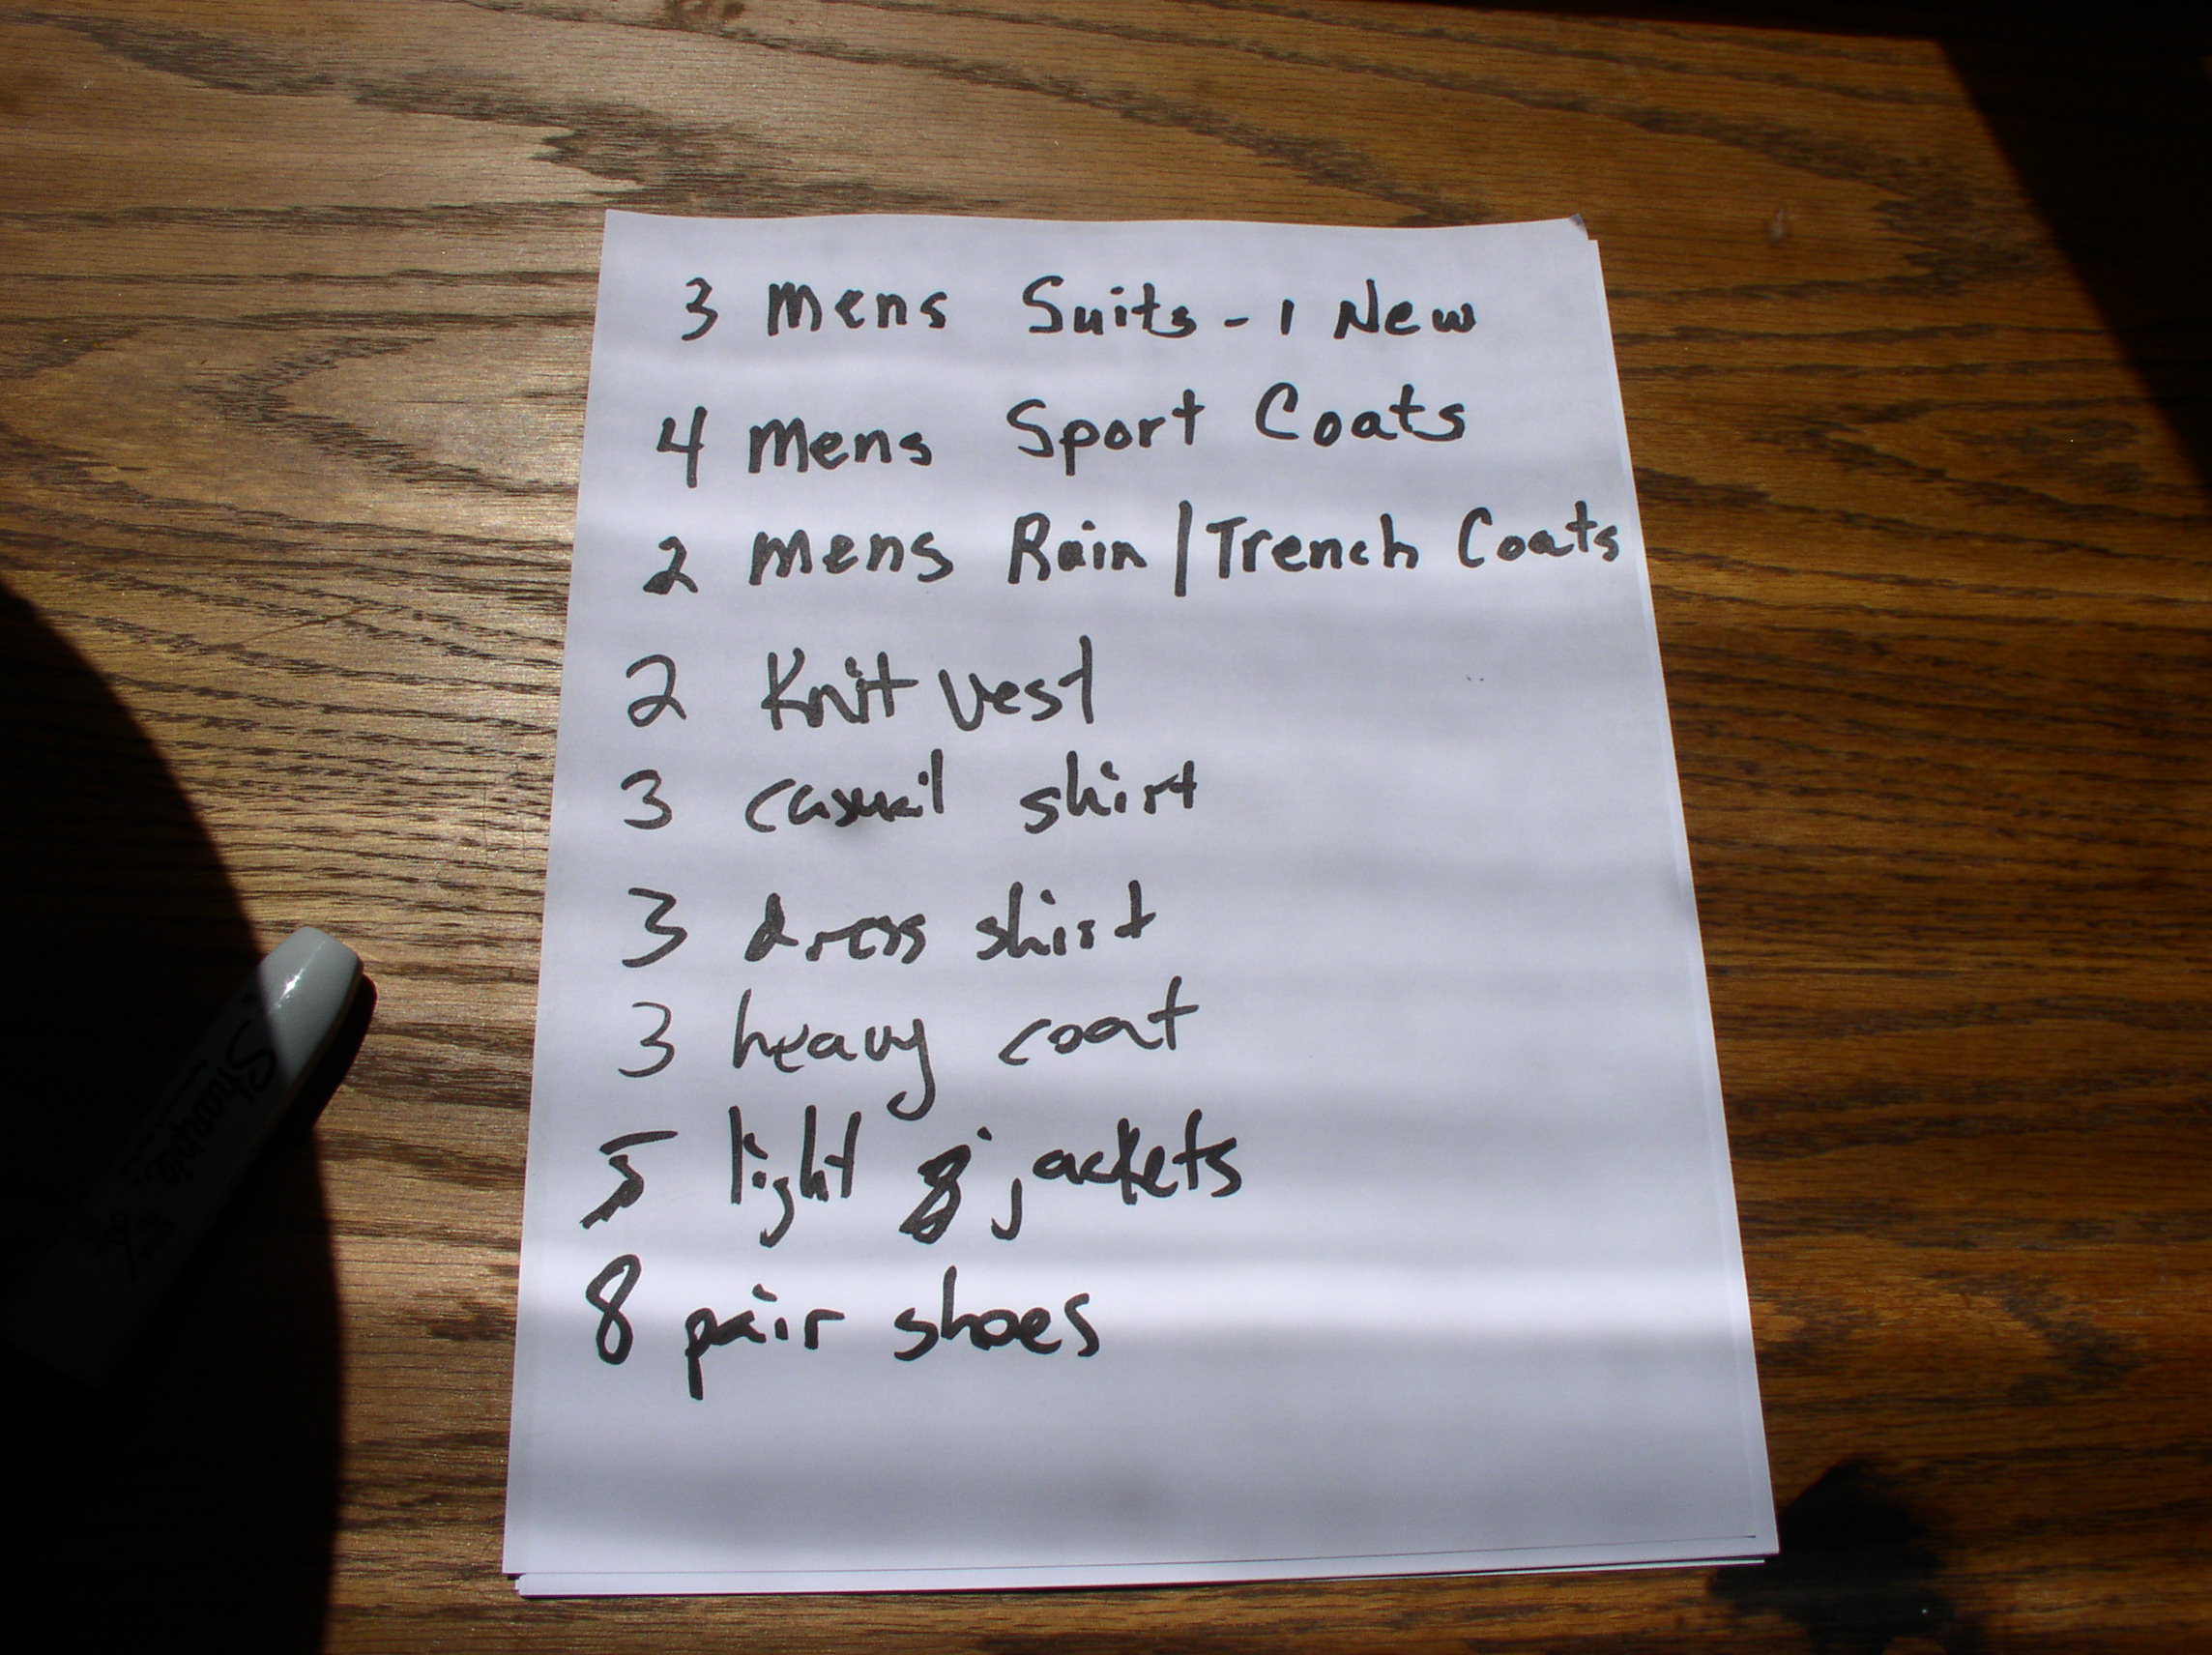 3 Mens Suits - 1 New
4 Mens Sport Coats
2 Mens Rain / Trench Coats
2 Knit vest
3 casual shirt
3 dress shirt
3 heavy coat
5 light jackets
8 pair shoes
Sharpie